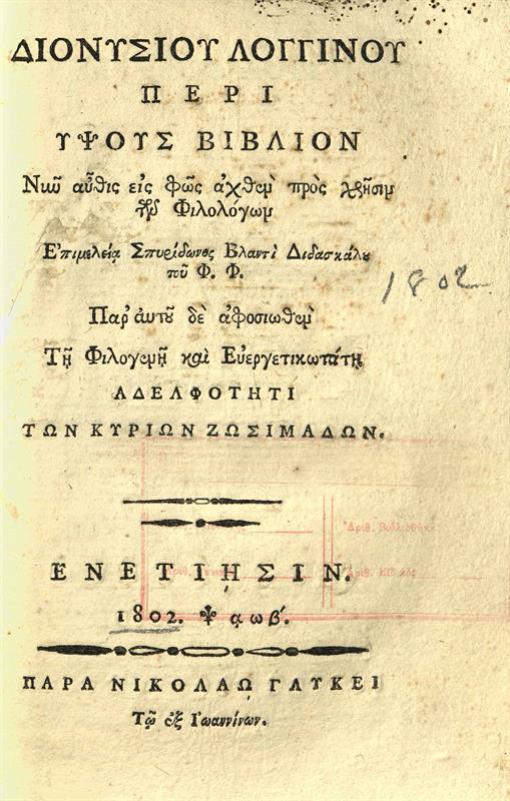 ΔΙΟΝΥΣΙΟΥ ΛΟΓΓΙΝΟΥ
ΠΕΡΙ
ΥΨΟΥΣ ΒΙΒΛΙΟΝ
Νῦν αὖθις εἰς φῶς ἀχθὲν πρὸς χρῆσιν
τῶν Φιλολόγων
Ἐπιμελείᾳ Σπυρίδωνος Βλαντῆ Διδασκάλου
τοῦ Φ. Φ.
1802
Παρ' αυτοῦ δὲ ἀφοσιωθὲν
Τῇ Φιλογενῇ καὶ Εὐεργετικωτάτῃ
ΑΔΕΛΦΟΤΗΤΙ
ΤΩΝ ΚΥΡΙΩΝ ΖΩΣΙΜΑΔΩΝ.
ΕΝΕΤΙΗΣΙΝ.
1802. αωβ'.
ΠΑΡΑ ΝΙΚΟΛΑΩ ΓΛΥΚΕΙ
Τῷ ἐξ Ἰωαννίνων.